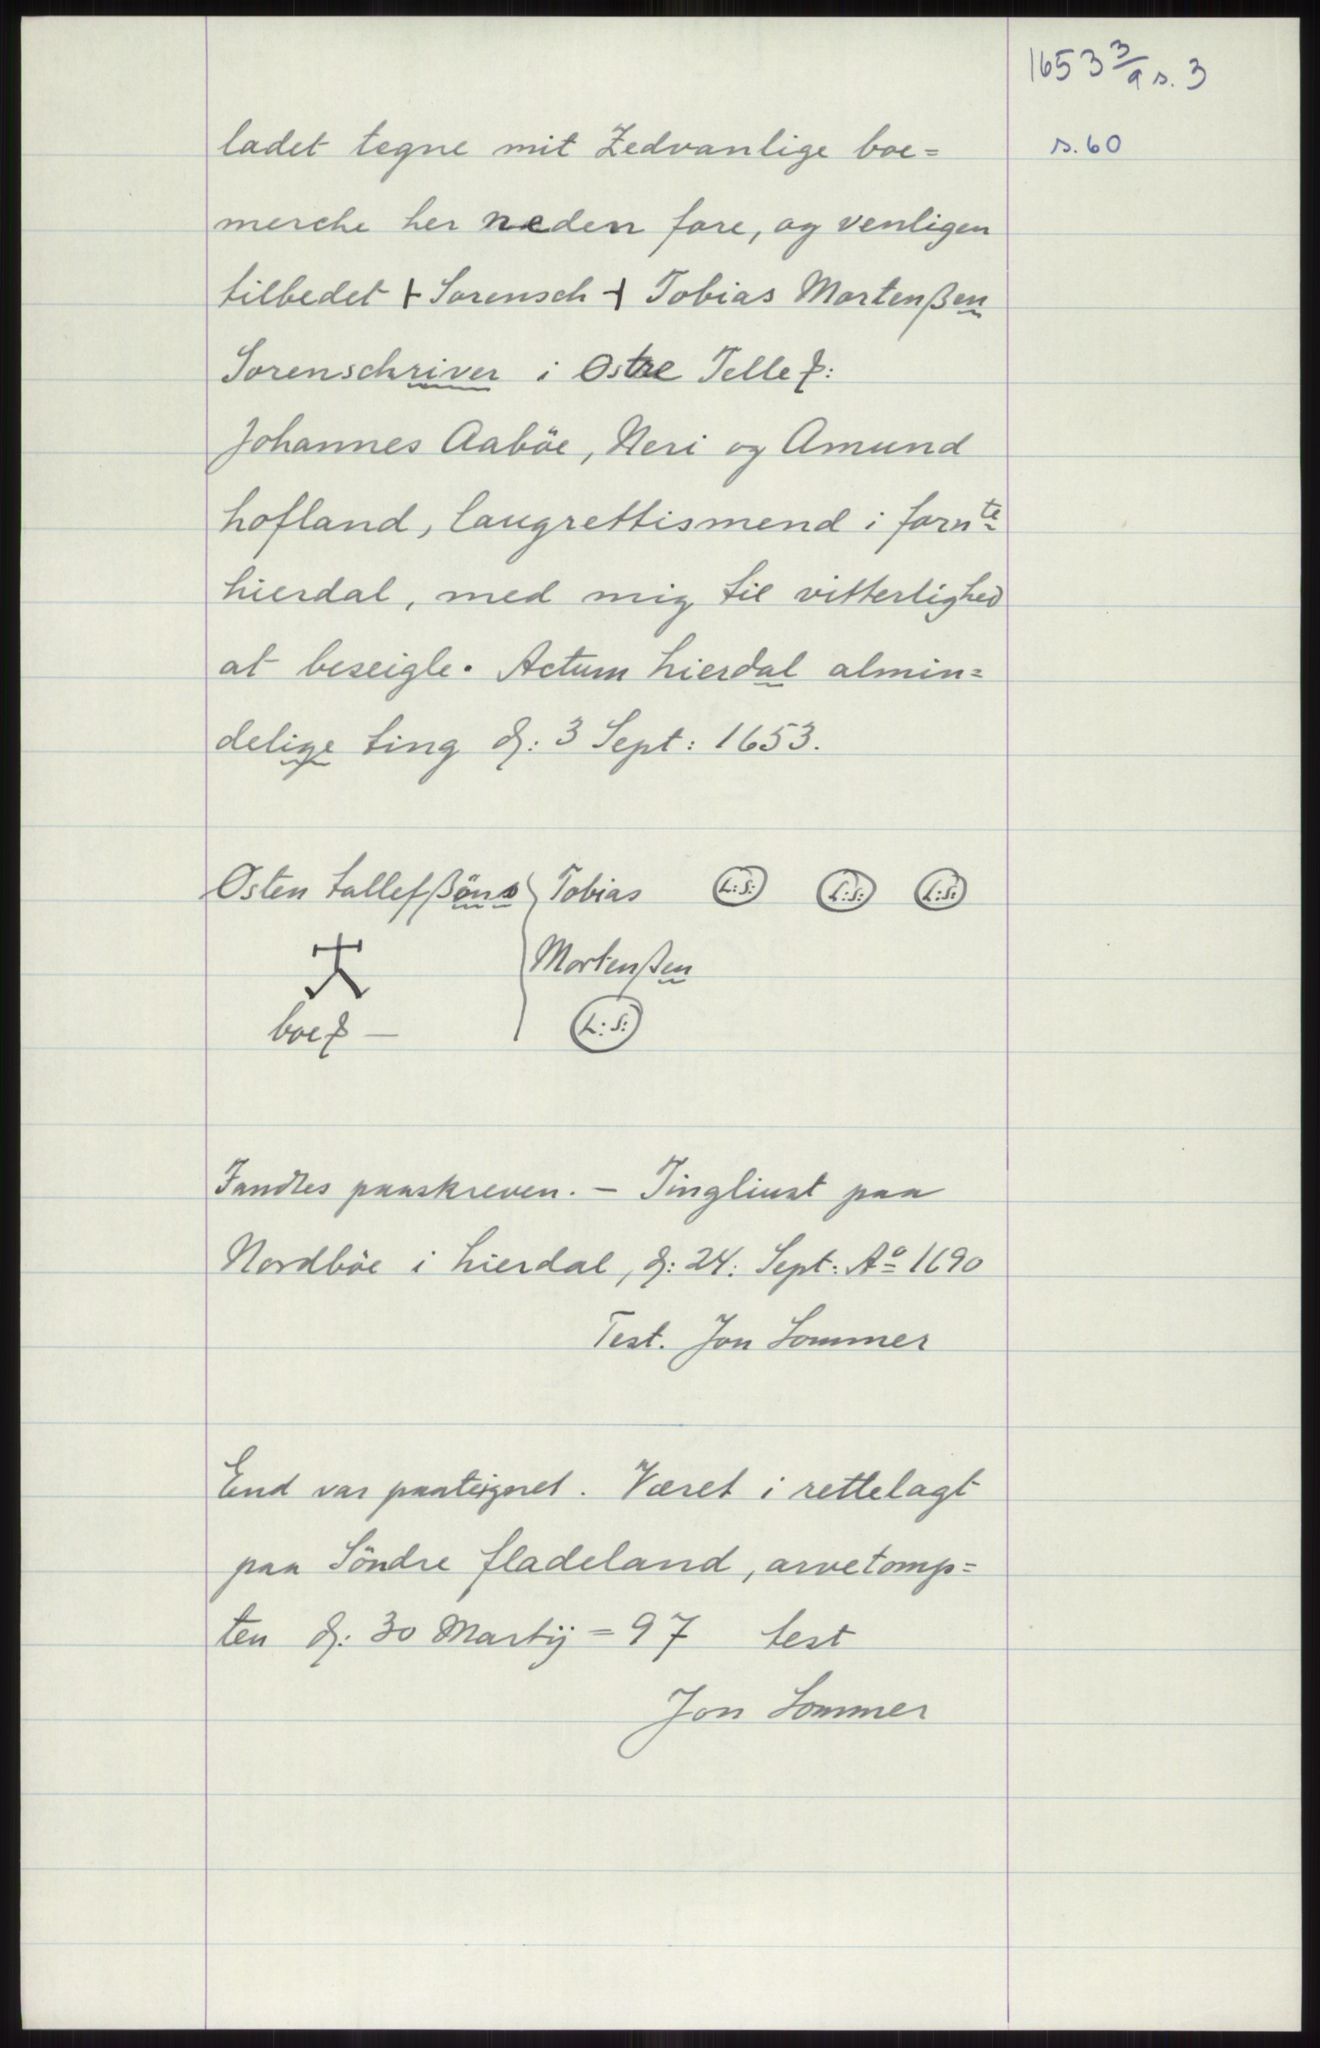 1653 3/9 s. 3
s. 60
ladet tegne mit Zedvanlige boe=
merche her neden fore, og venligen
tilbedet ⊢ Sorensch ⊣ Tobias Mortenßen
Sorenschriver i Ostre Telleſ:
Johannes Aaböe, Neri og Amund
hofland, laugrettismend i forn te
hierdal, med mig til vitterlighed
at beseigle. Actum hierdal almin=
delige ting d: 3 Sept: 1653.
Osten tallefßöns Tobias L:S: L:S: L:S:
Mortenßen
boeſ — L:S:
Fandtes paaskreven. – Tingliust paa
Nordböe i hierdal, d: 24: Sept: Ao 1690
Test. Jon Sommer
End var paateignet. Været i rettelagt
paa Söndre fladeland, arvetomp=
ten d: 30 Martij = 97 test
Jon Sommer